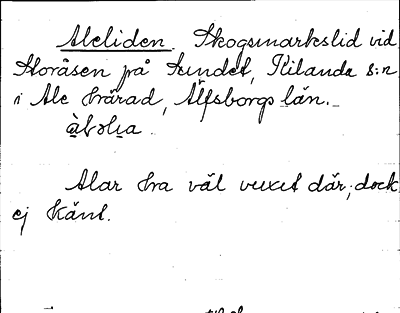 Aleliden. Skogsmarkslid vid
Storåsen på Sundet, Kilanda s:n
i Ale härad, Älfsborgs län.

Alar ha väl vuxit där, dock
ej känt.